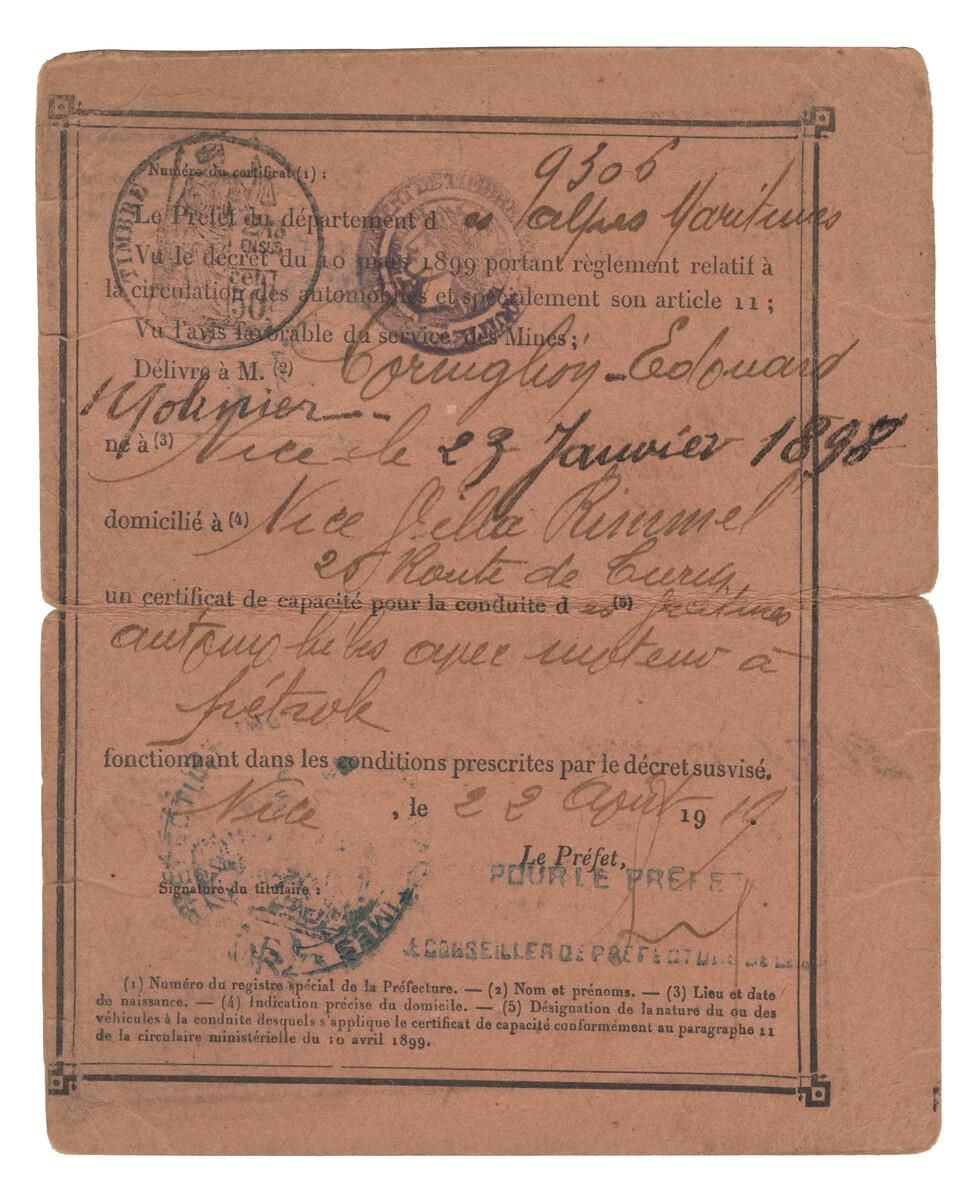 Numéro du certificat (1) : 9306
Le Préfet du département des alpes Maritimes
Vu le décret du 10 mars 1899 portant règlement relatif à
la circulation des automobiles et spécialement son article 11 ;
Vu l'avis favorable du service des Mines ;
Délivre à M. (2) Edouard
né à (3) Nice le 23 Janvier 1898
domicilié à (4) Nice Villa Rimmel
26 Route de
un certificat de capacité pour la conduite des (5)
automobiles avec moteur à
pétrole
fonctionnant dans les conditions prescrites par le décret susvisé.
Nice, le 22 Août 19
Le Préfet,
POUR LE PRÉFET
Signature du titulaire :
LE CONSEILLER DE PRÉFECTURE
(1) Numéro du registre spécial de la Préfecture. — (2) Nom et prénoms. — (3) Lieu et date
de naissance. — (4) Indication précise du domicile. — (5) Désignation de la nature du ou des
véhicules à la conduite desquels s'applique le certificat de capacité conformément au paragraphe 11
de la circulaire ministérielle du 10 avril 1899.
TIMBRE